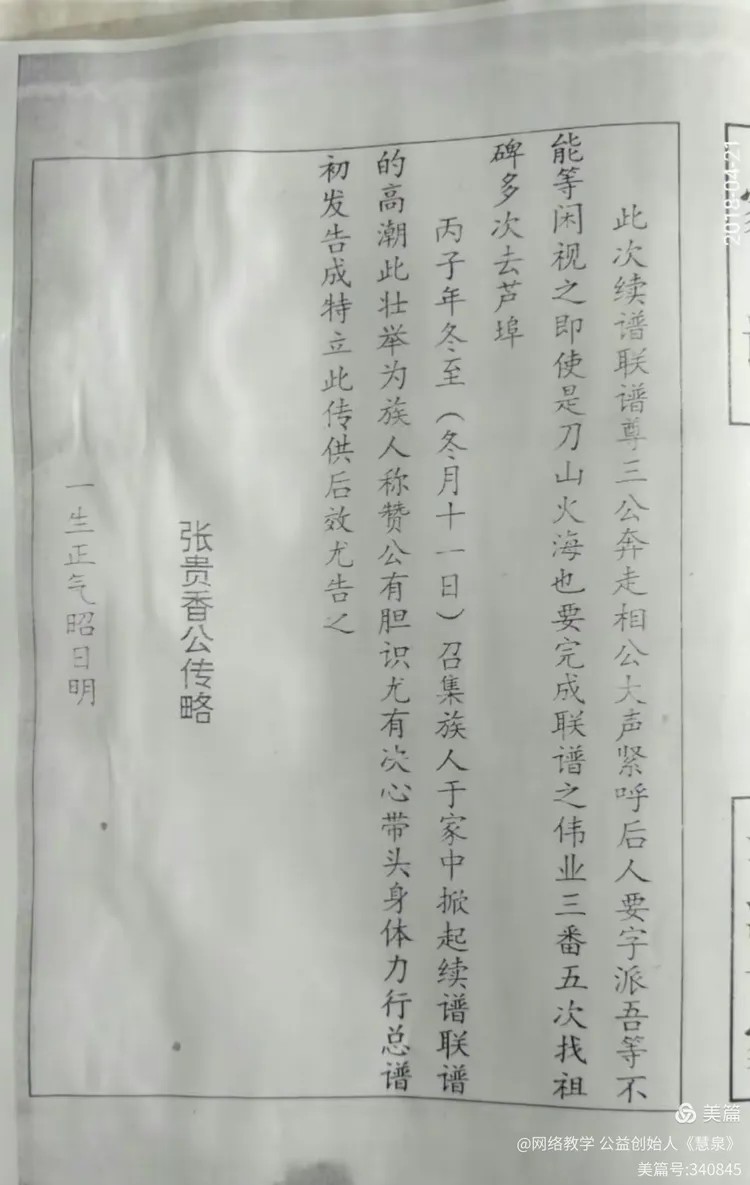 此次续谱联谱尊三公奔走相公大声紧呼后人要字派吾等不
能等闲视之即使是刀山火海也要完成联谱之伟业三番五次找祖
碑多次去芦埠
丙子年冬至（冬月十一日）召集族人于家中掀起续谱联谱
的高潮此壮举为族人称赞公有胆识尤有决心带头身体力行总谱
初发告成特立此传供后效尤告之
张贵香公传略
一生正气昭日明
2018-04-21
美篇
@网络教学 公益创始人《慧泉》
美篇号:340845